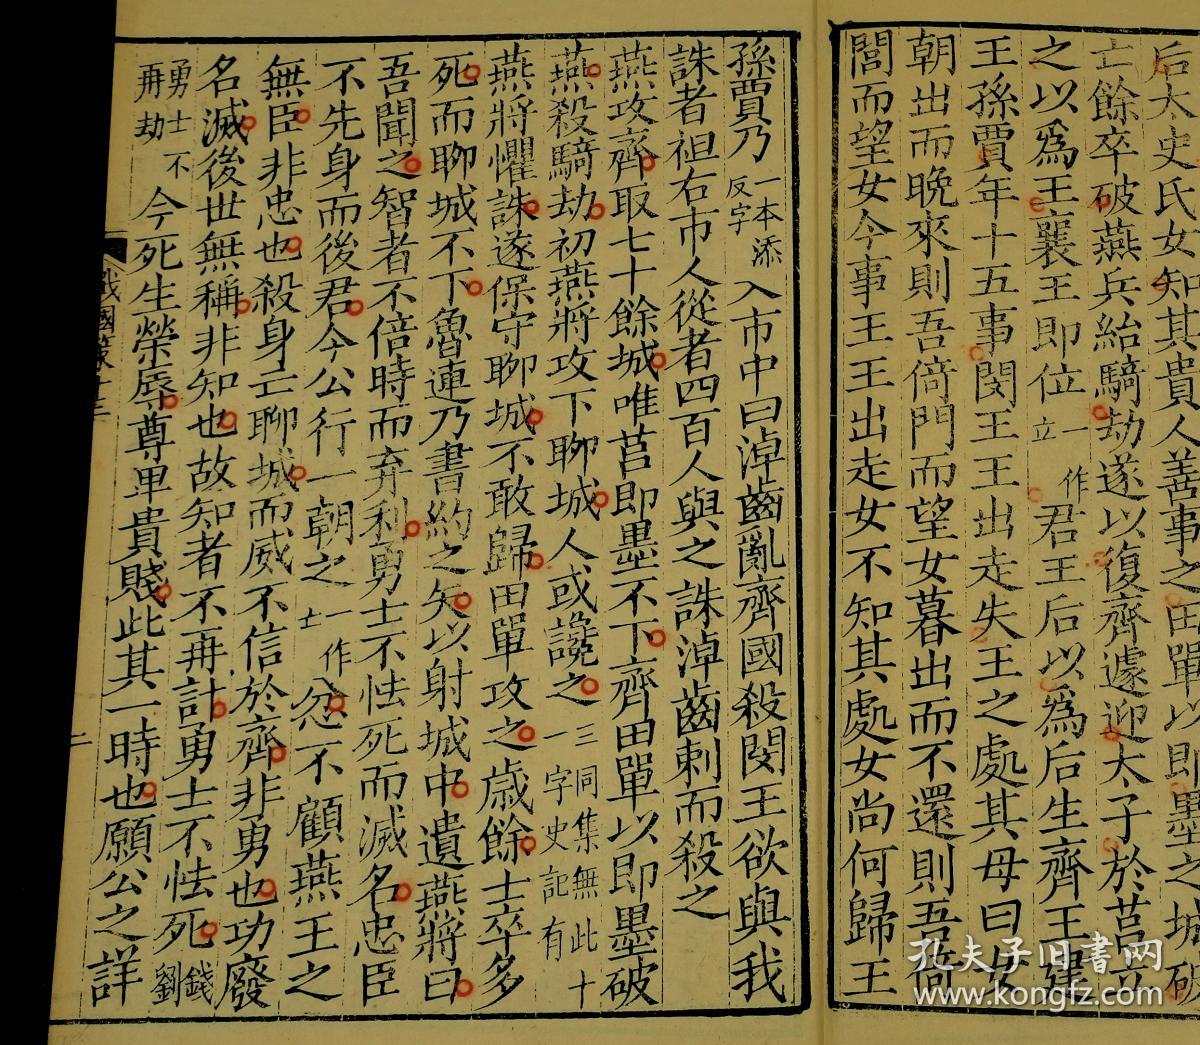 后太史氏女知其貴人善事之田單以即墨之城破
亡餘卒破燕兵紿騎劫遂以復齊遽迎太子於莒立
之以爲王襄王即位一作立君王后以爲后生齊王建
王孫賈年十五事閔王王出走失王之處其母曰女
朝出而晚來則吾倚門而望女暮出而不還則吾倚
閭而望女今事王王出走女不知其處女尚何歸王
孫賈乃一本添反字入市中曰淖齒亂齊國殺閔王欲與我
誅者袒右市人從者四百人與之誅淖齒刺而殺之
燕攻齊取七十餘城唯莒即墨不下齊田單以即墨破
燕殺騎劫初燕將攻下聊城人或讒之三同集無此十一字史記有
燕將懼誅遂保守聊城不敢歸田單攻之歲餘士卒多
死而聊城不下魯連乃書約之矢以射城中遺燕將曰
吾聞之智者不倍時而弃利勇士不怯死而滅名忠臣
不先身而後君今公行一朝之一作士忿不顧燕王之
無臣非忠也殺身亡聊城而威不信於齊非勇也功廢
名滅後世無稱非知也故知者不再計勇士不怯死錢劉
勇士不再劫今死生榮辱尊卑貴賤此其一時也願公之詳
戰國策十三
二
孔夫子旧书网
www.kongfz.com